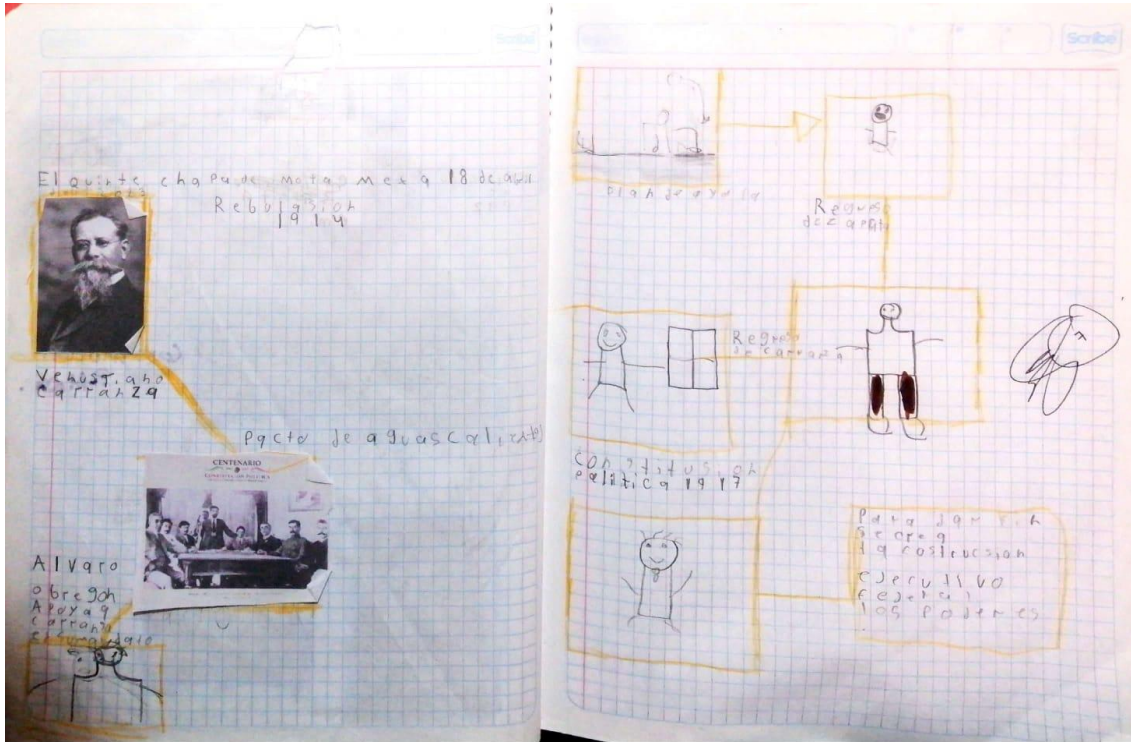 Scribe
El quinte chapa de Mota Mex a 18 de abril
Rebulsion
1914
Venustiano
Carranza
Pacto de aguascalientes
CENTENARIO
Alvaro
obregon
Apoya a
Carranza
Scribe
Plan de ayala
Regreso
de zapata
Regreso
de carranza
Constitusion
politica 1917
Para
se crea
la costrucsion
ejecutivo
federal
los poderes